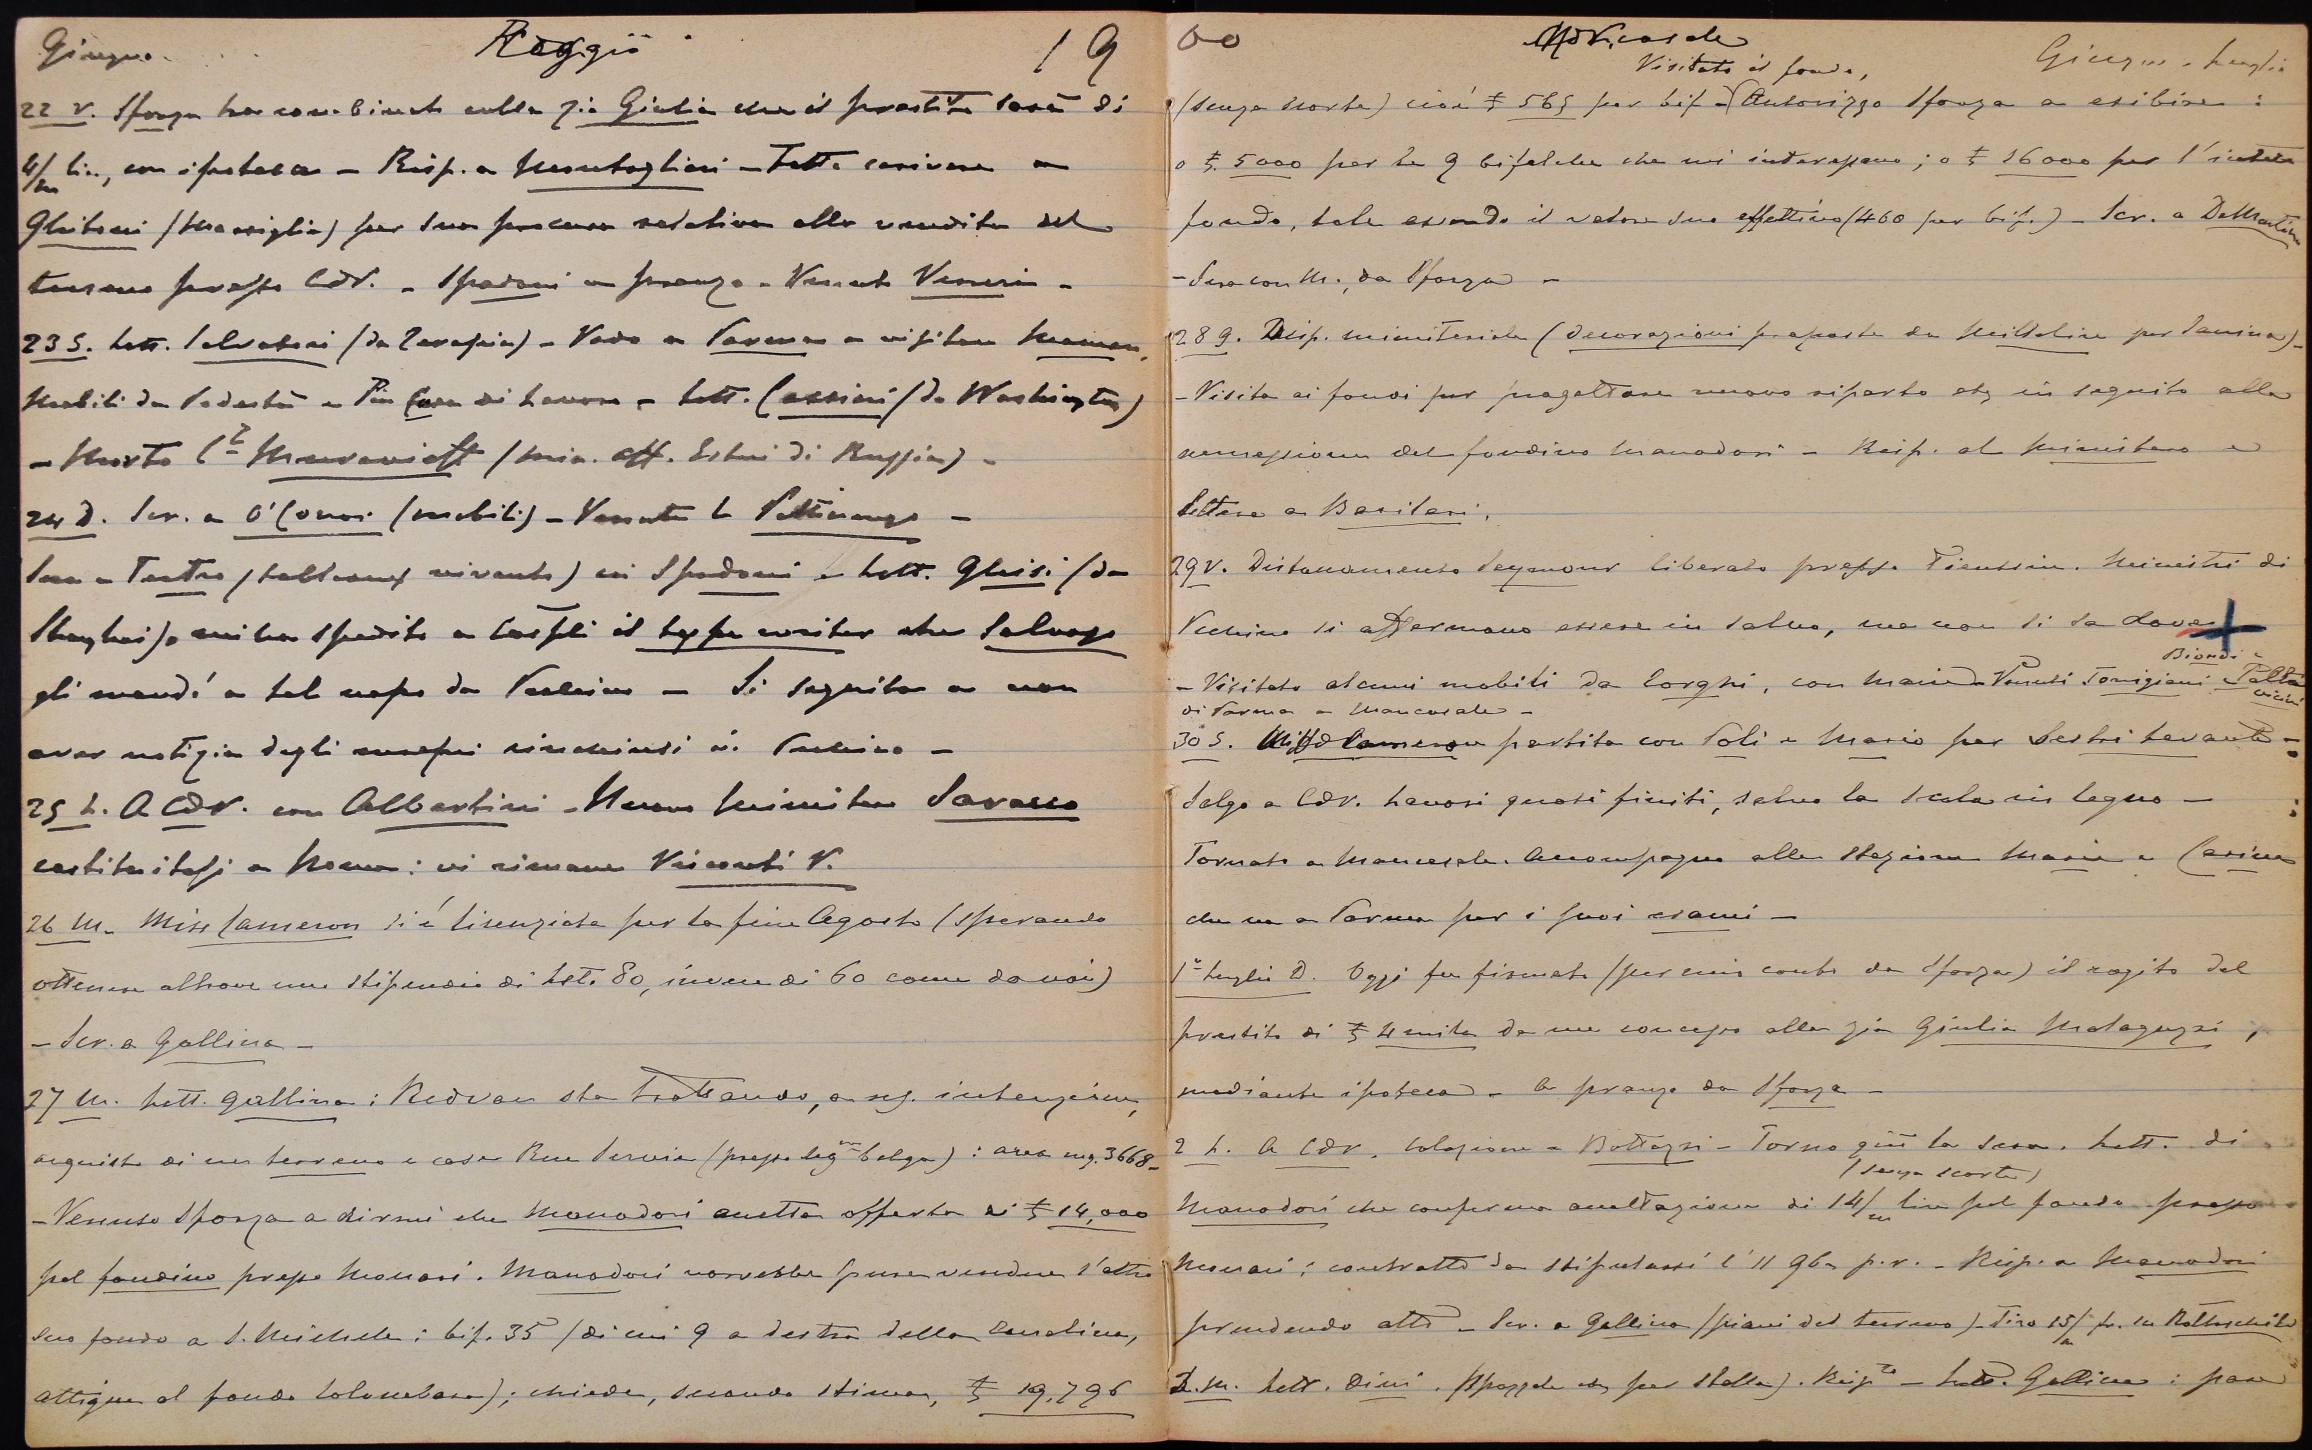 Giugno. Reggio 19
22 V. Sforza ha combinato colla zia Giulia che il prestito sarà di
4/m lire, con ipoteca — Risp. a — Lett. scrivere a
Ghitoni (Marsiglia) per sua procura relativa alla vendita del
terreno presso CdV. — Spadoni a pranzo — Venuto
23 S. Lett. Salvatori (da Zarafia) — Vado a Parma a visitare Maman,
Mobili da Podestà e Pia Casa di Lavoro — Lett. Cassini (da Washington)
— Morto Cte Muravieff (min. Aff. Esteri di Russia) —
24 D. Scr. a O'Conor (mobili) — Venuta la Pettinengo —
Sera a Teatro (tableaux vivants) coi Spadoni — Lett. Ghisi (da
Shanghai): mi ha spedito a Cospli il type writer che Salvago
gli mandò a tal uopo da Pechino — Si seguita a non
aver notizia degli europei rinchiusi in Pechino —
25 L. A CdV. con Albertini — Nuovo Ministero Saracco
costituitosi a Roma: vi rimane Visconti V.
26 M. Miss Cameron si è licenziata per la fine Agosto (sperando
ottenere altrove uno stipendio di Lst. 80, invece di 60 come da noi)
— Scr. a Gallina —
27 M. Lett. Gallina: Redvan sta trattando, a ns. intenzione,
acquisto di un terreno e casa Rue Servia (presso legne belga): area mq. 3668 —
— Venuto Sforza a dirmi che Manodori accetta offerta di £ 14,000
pel fondino presso Monari. Manodori vorrebbe pure vendere l'altro
suo fondo a S. Michele: bif. 35 (di cui 9 a destra della Canalina,
attigue al fondo Colombara); chiede, secondo stima, £ 19,796
00 Mancasale Giugno - Luglio
Visitato il fondo,
(senza scorte) cioè £ 565 per bif. — Autorizzo Sforza a esibire:
o £ 5000 per le 9 bifolche che mi interessano; o £ 16000 per l'intero
fondo, tale essendo il valore suo effettivo (460 per bif.) — Scr. a DeMartino
— Sera con M., da Sforza —
28 G. Disp. ministeriale (decorazioni proposte da per Sanina) —
— Visita ai fondi per progettare nuovo riparto etc, in seguito alla
annessione del fondino Manodori — Risp. al Ministero e
lettera a Basilari.
29 V. Distaccamento Seymour liberato presso Tientsin. Ministri di
Pechino si affermano essere in salvo, ma non si sa dove
— Visitato alcuni mobili da Corghi, con Marie — Venuti Torrigiani Biondi e Pallavicini
di Parma a Mancasale —
30 S. Miss Cameron partita con Poli e Mario per Sestri Levante —
Salgo a CdV. Lavori quasi finiti, salvo la scala in legno —
Tornato a Mancasale. Accompagno alla stazione Marie e Carina
che va a Parma per i suoi esami —
1° Luglio D. Oggi fu firmato (per mio conto da Sforza) il rogito del
prestito di £ 4 mila da me concesso alla zia Giulia Malaguzzi,
mediante ipoteca — a pranzo da Sforza —
2 L. A CdV. Colazione a Bottazzi — Torno giù la sera. Lett. di
(senza scorte)
Manodori che conferma accettazione di 14/m lire pel fondo presso
Monari; contratto da stipularsi l'11 9bre p.v. — Risp. a Manodori
prendendo atto — Scr. a Gallina (piani del terreno) — Tiro 15/m fr. su Rothschild
3. M. Lett. Dini. (Spazzole etc per Stalla). Rispto — Lett. Gallina: pare